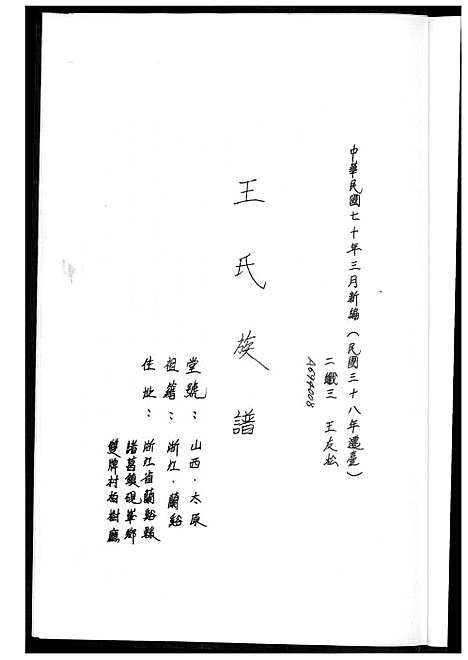 中華民國七十年三月新編(民國三十八年遷臺)
二織三 王友松
A694008
王氏族譜
堂號：山西．太原
祖籍：浙江．蘭谿
住址：浙江省蘭谿縣
諸葛鎮硯峯鄉
雙牌村柏樹廳